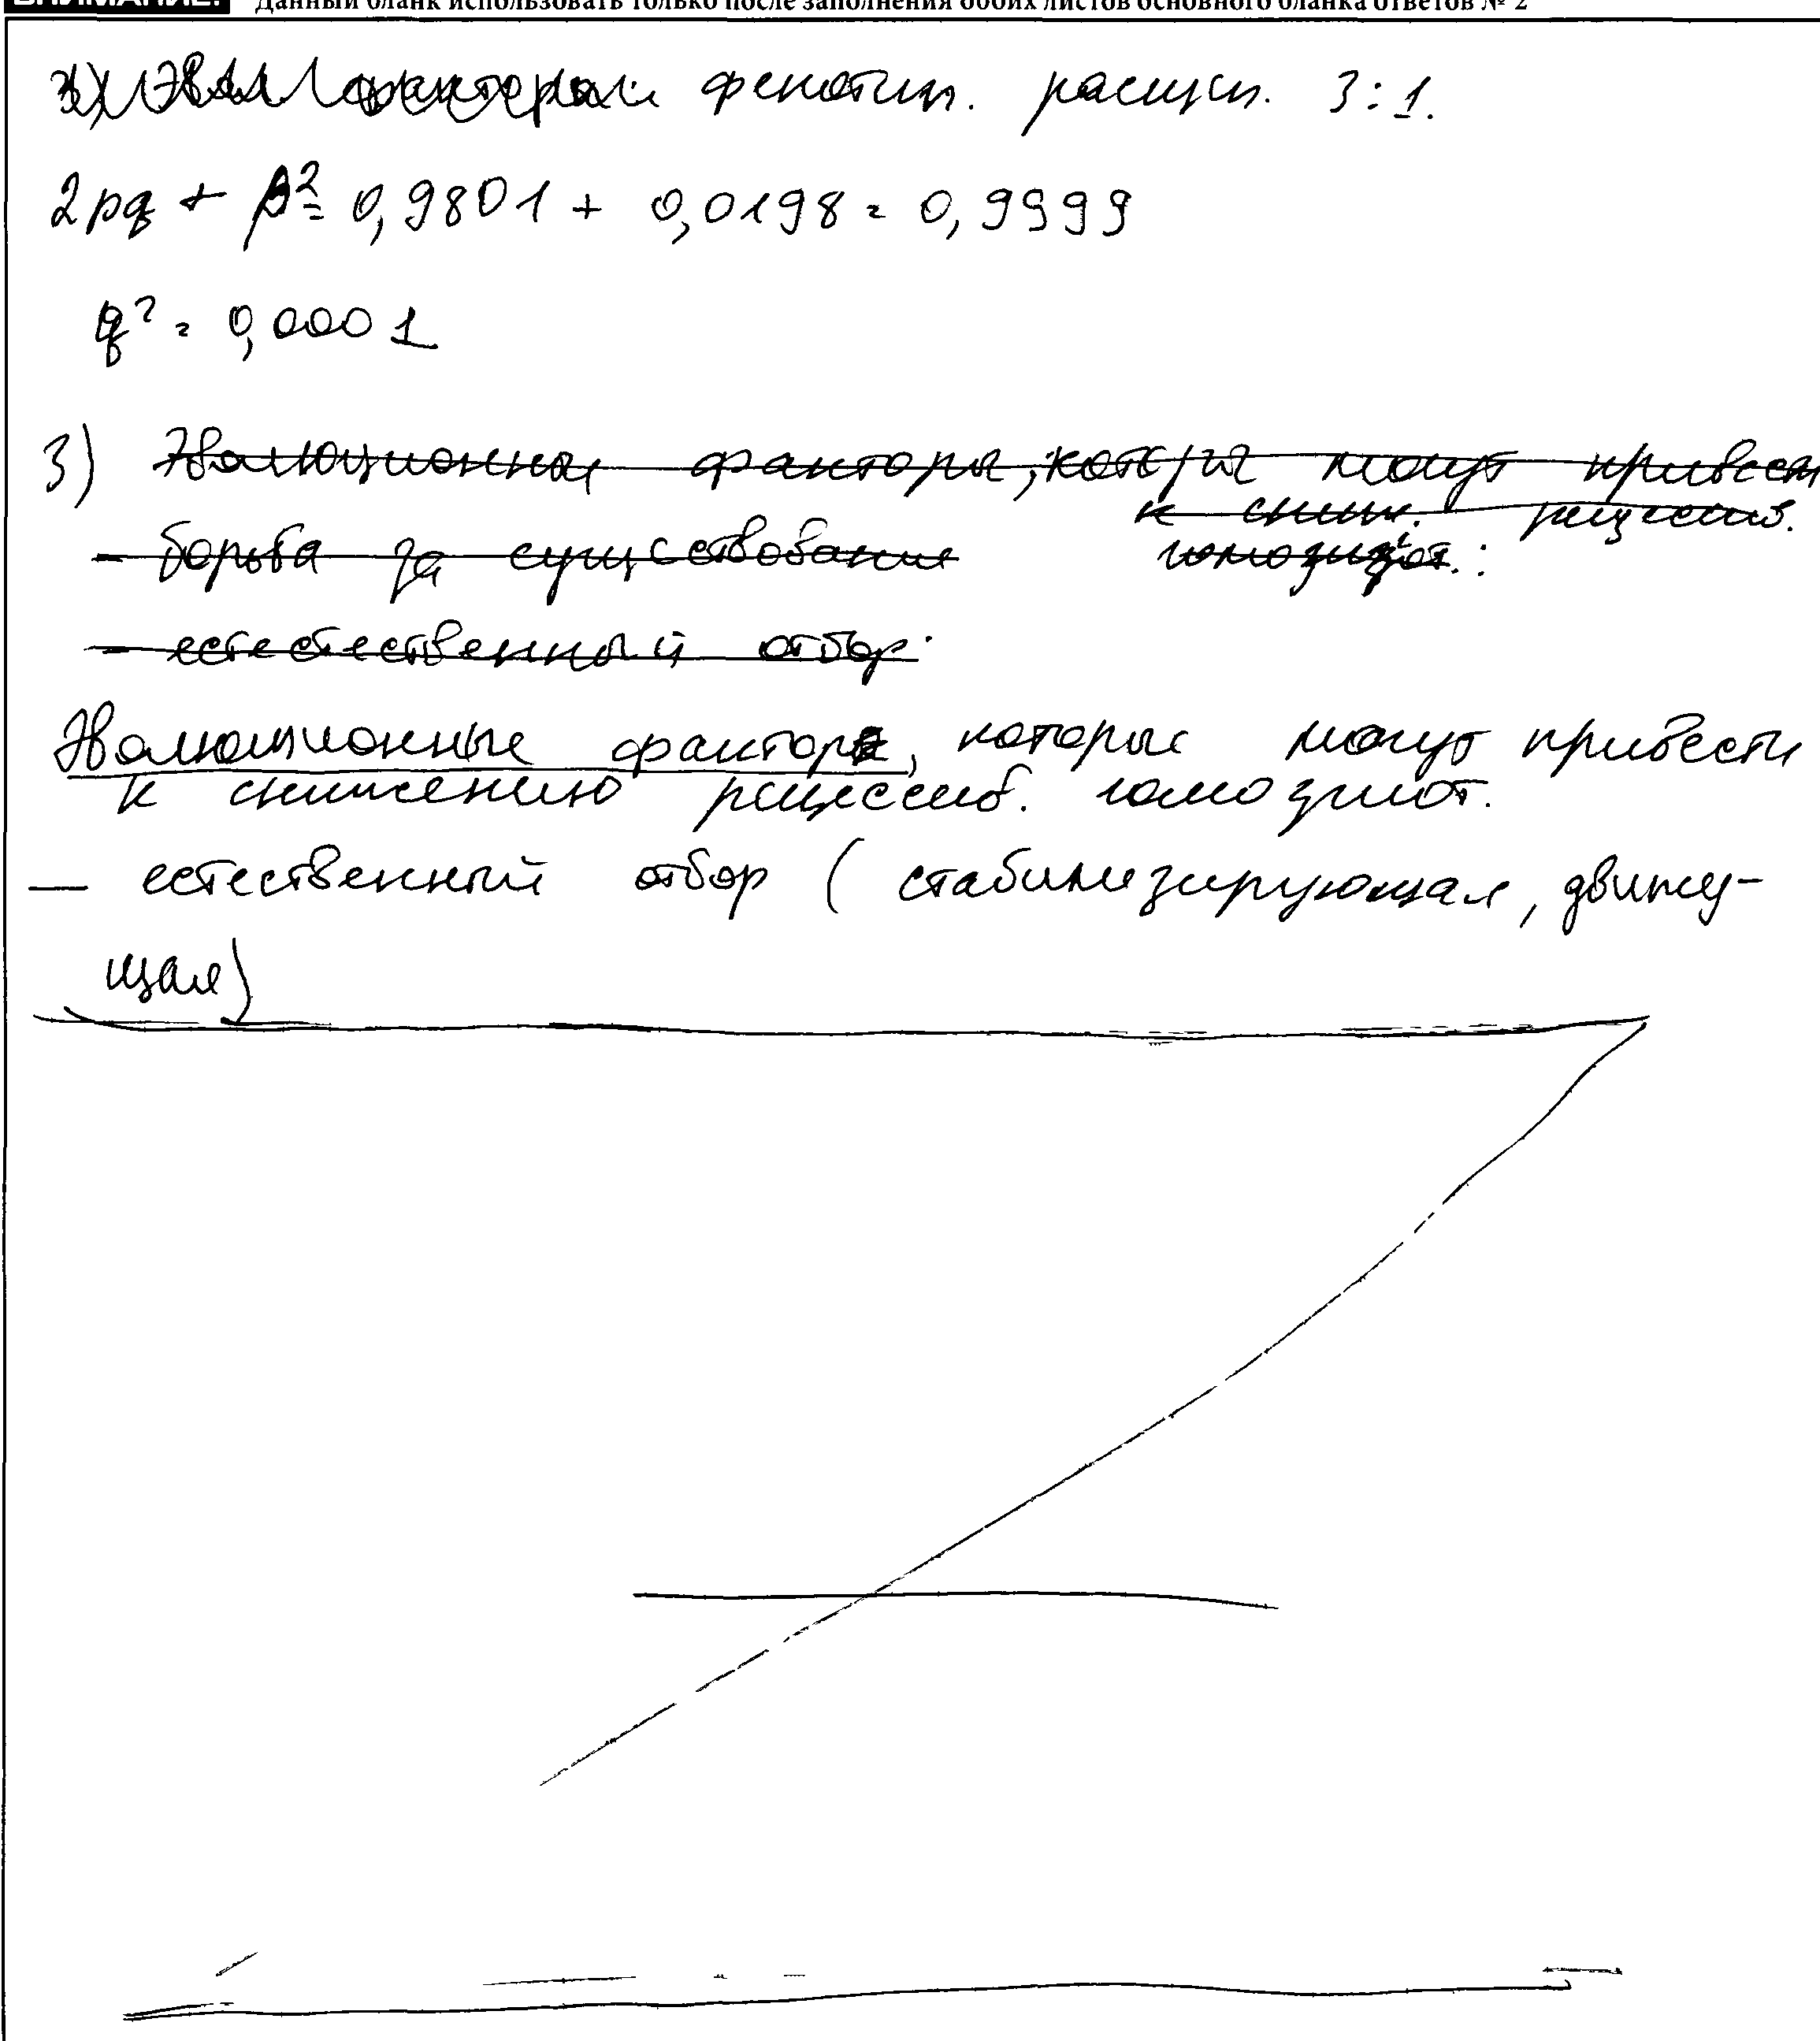 ВНИМАНИЕ! Данный бланк использовать только после заполнения обоих листов основного бланка ответов № 2
фенотип. расщеп. 3:1.
2pq + p² = 0,9801 + 0,0198 = 0,9999
q² = 0,0001
3) Эволюционны факторы, которы могут привести
к сниж. рецессив.
- борьба за существование гомозигот.:
- естестественный отбор.
Эволюционные фактора, которые могут привести
к снижению рецессив. гомозигот.
— естественный отбор ( стабилизирующая, движу-
щая)